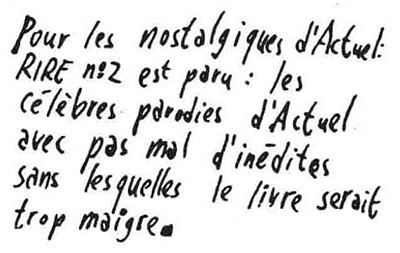 Pour les nostalgiques d'Actuel:
RIRE n°2 est paru : les
célèbres parodies d'Actuel
avec pas mal d'inédites
sans lesquelles le livre serait
trop maigre.